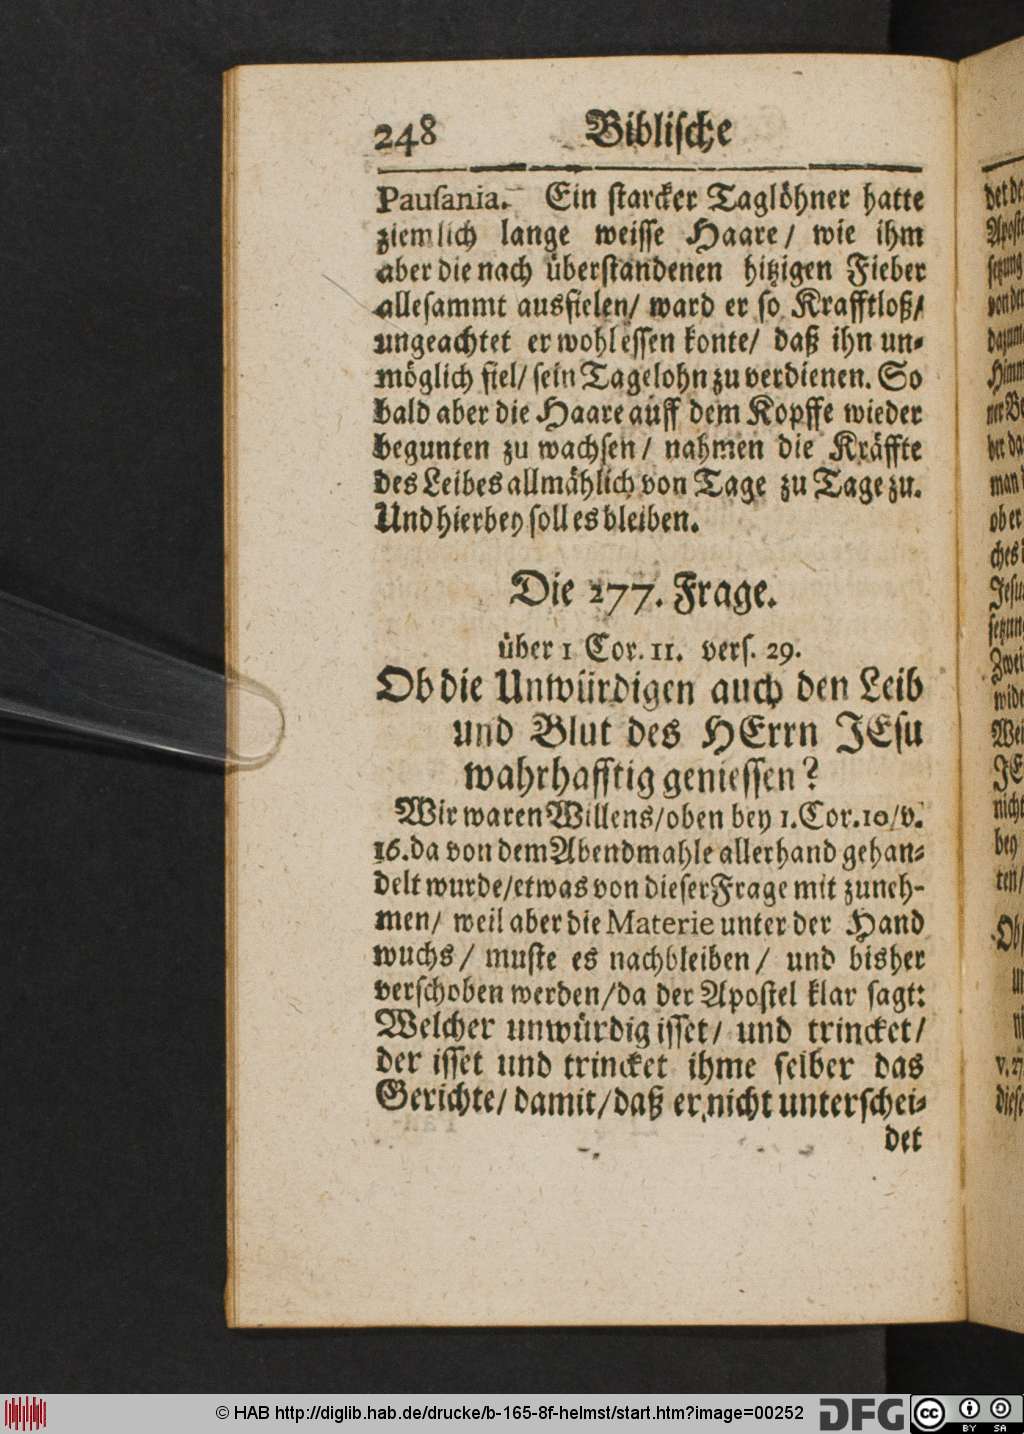 248 Biblische
Pausania. Ein starcker Taglöhner hatte
ziemlich lange weisse Haare/ wie ihm
aber die nach überstandenen hitzigen Fieber
allesammt ausfielen/ ward er so Krafftloß/
ungeachtet er wohl essen konte/ daß ihn un-
möglich fiel/ sein Tagelohn zu verdienen. So
bald aber die Haare auff dem Kopffe wieder
begunten zu wachsen/ nahmen die Kräffte
des Leibes allmählich von Tage zu Tage zu.
Und hierbey soll es bleiben.
Die 277. Frage.
über 1 Cor. 11. vers. 29.
Ob die Unwürdigen auch den Leib
und Blut des HErrn JEsu
wahrhafftig geniessen?
Wir waren Willens/oben bey 1.Cor.10/v.
16.da von dem Abendmahle allerhand gehan-
delt wurde/etwas von dieser Frage mit zuneh-
men/ weil aber die Materie unter der Hand
wuchs/ muste es nachbleiben/ und bisher
verschoben werden/da der Apostel klar sagt:
Welcher unwürdig isset/ und trincket/
der isset und trincket ihme selber das
Gerichte/ damit/daß er nicht unterschei-
det
© HAB http://diglib.hab.de/drucke/b-165-8f-helmst/start.htm?image=00252
DFG
cc BY SA